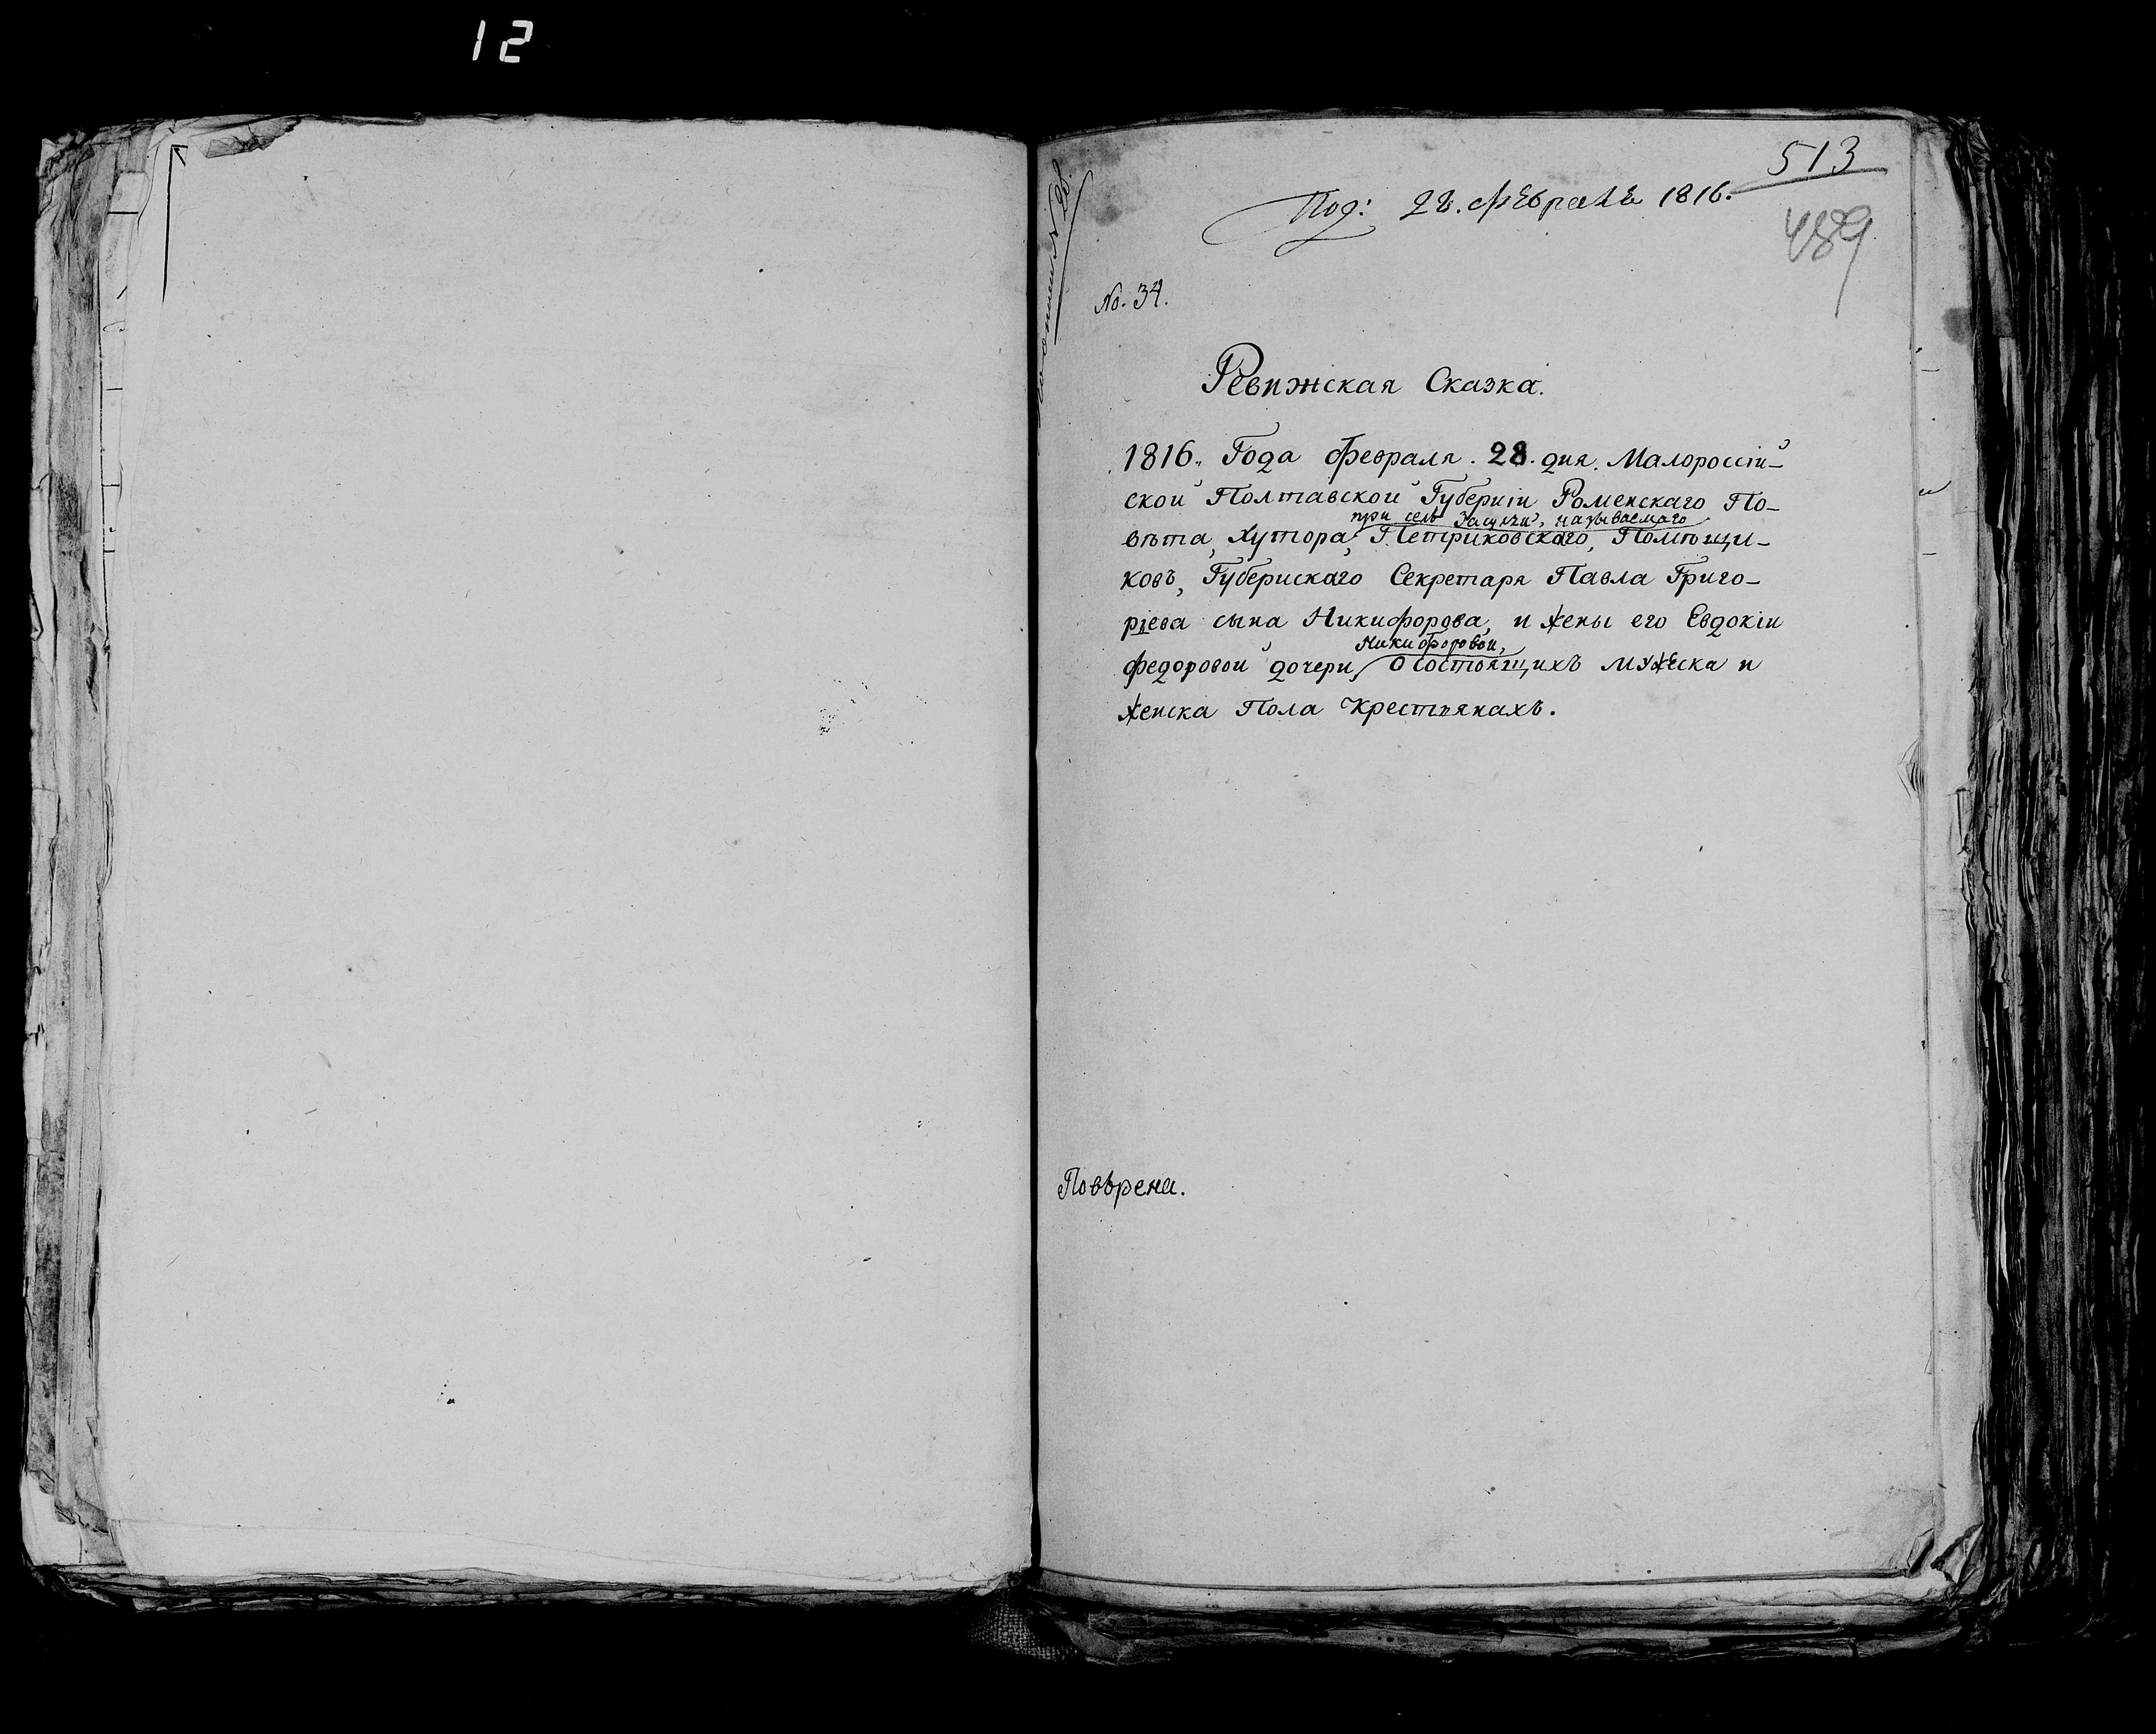 12
513
Под: 28. февраля 1816.
489
№ 28.
No. 34.
Ревижская Сказка.
1816. Года февраля. 28. дня. Малороссій-
ской Полтавской Губерніи Роменскаго По-
при селѣ называемаго
вѣта, Хутора, Петриковскаго, Помѣщи-
ковъ, Губернскаго Секретаря Павла Григо-
ріева сына Никифорова, и жены его Евдокіи
Никифоровой,
федоровой дочери, о состоящихъ мужеска и
женска Пола крестьянахъ.
Повѣрена.